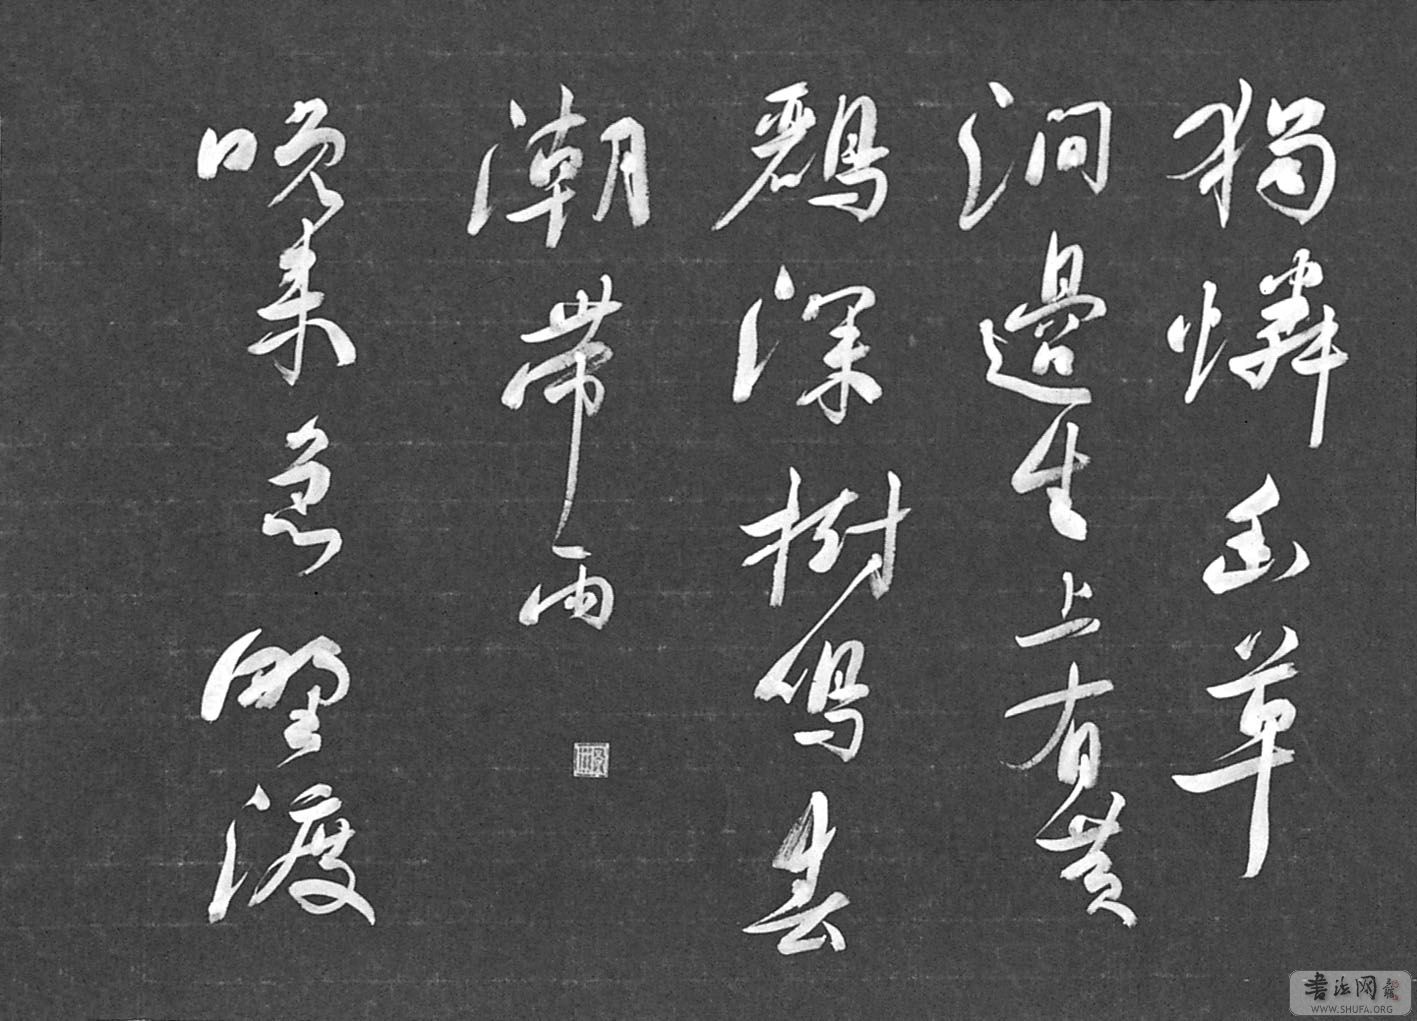 獨憐幽草
澗邊生上有黃
鸝深樹鳴春
潮帶雨
晚來急野渡
書法网
WWW.SHUFA.ORG